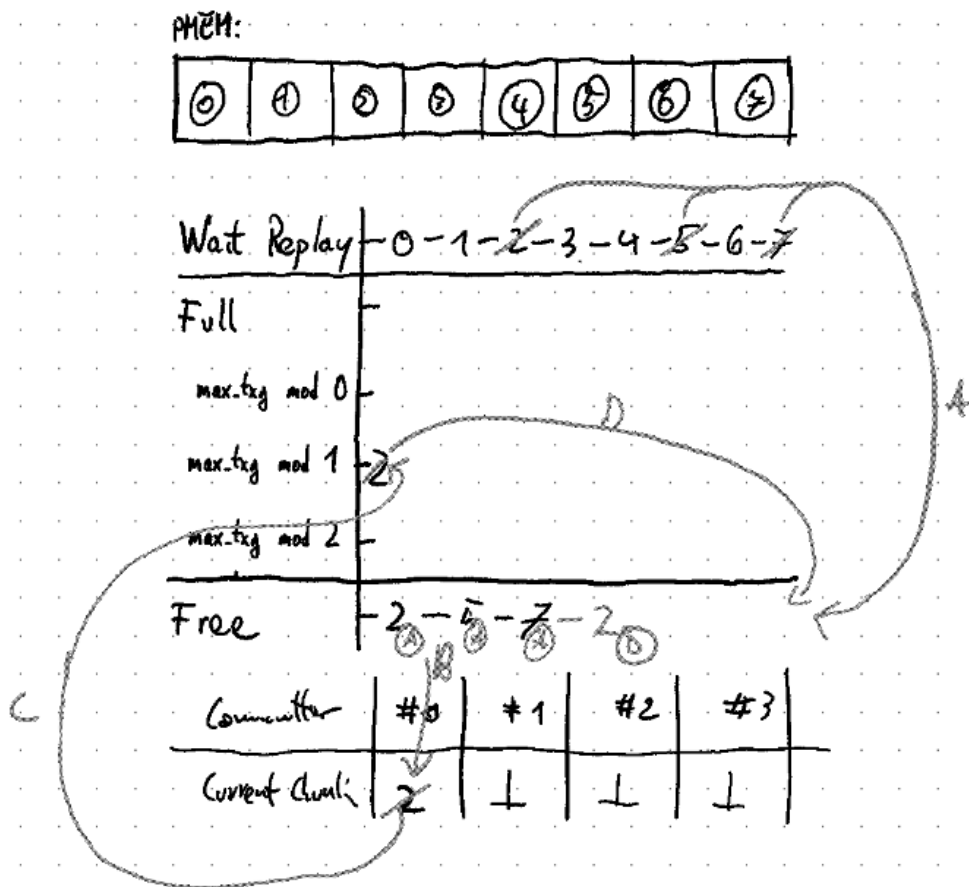 PMEM:
0 1 2 3 4 5 6 7
Wait Replay - 0 - 1 - 2 - 3 - 4 - 5 - 6 - 7
Full
max_txg mod 0
D
A
max_txg mod 1 2
max_txg mod 2
Free - 2 - 5 - 7 - 2
A A A D
B
C
Committer #0 #1 #2 #3
Current Chunk: 2 ⊥ ⊥ ⊥